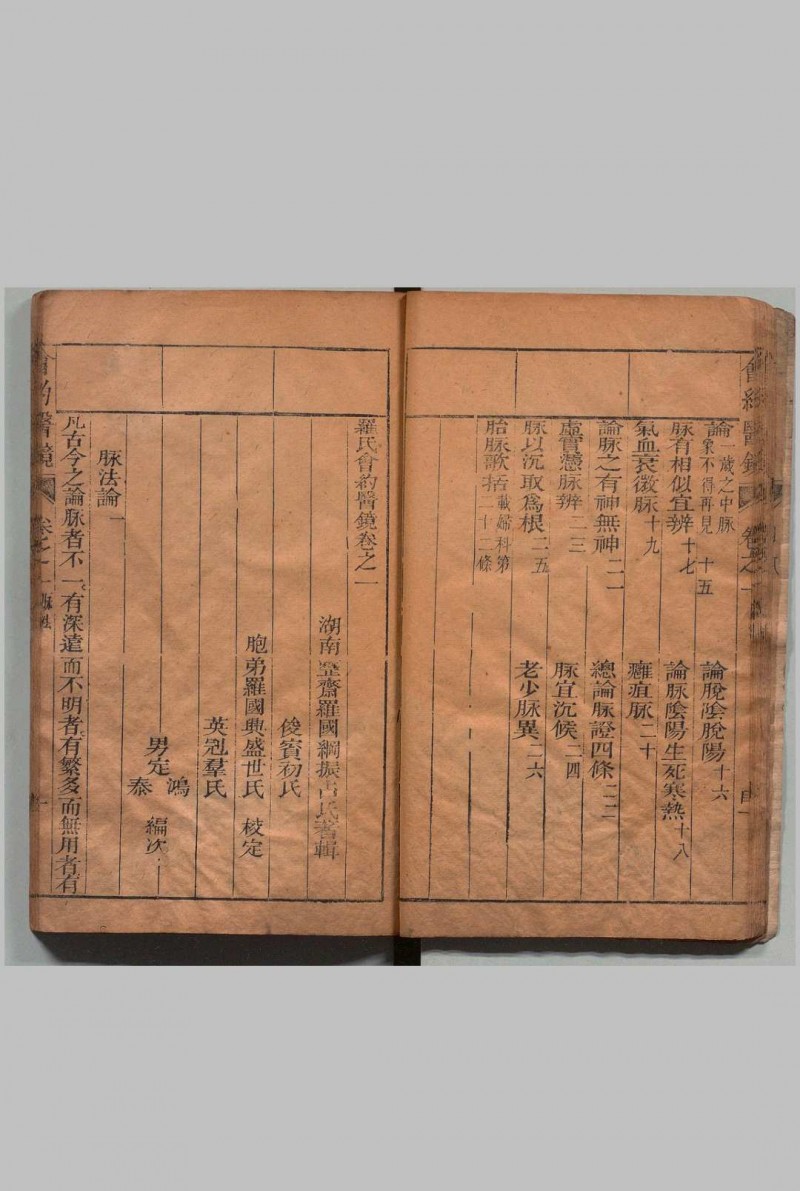 會約醫鏡 卷之一
論一歲之中脉象不得再見 十五 論脫陰脫陽十六
脉有相似宜辨十七 論脉陰陽生死寒熱十八
氣血衰徵脉十九 癰疽脉二十
論脉之有神無神二一 總論脉證四條二二
虛實憑脉辨二三 脉宜沉候二四
脉以沉取爲根二五 老少脉異二六
胎脉歌括載婦科第二十二條
羅氏會約醫鏡卷之一
湖南 羅國綱振占氏著輯
俊賓初氏
胞弟羅國興盛世氏 校定
英冠羣氏
男定鴻泰 編次
脉法論一
凡古今之論脉者不一有深遠而不明者有繁多而無用者有
會約醫鏡 卷之一 脉法